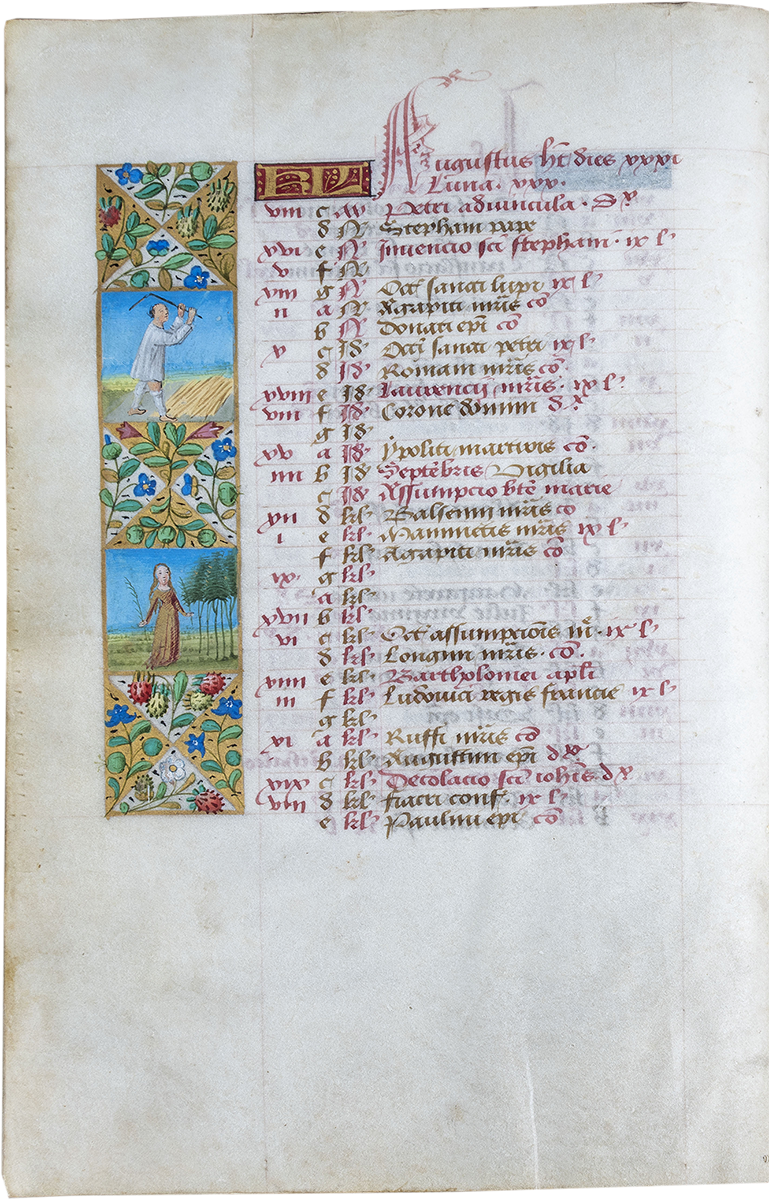 KL Augustus ht dies xxxi
Luna. xxx.
viii c Petri ad vincula. d x
d N Stephani pape
xvi e N Invencio sci stephani. ix l
v f N
g N Oct sancti lupi ix l
ii a N Agapiti mris co
b N Donati epi co
v c Id Oct sancti petri ix l
d Id Romani mris co
xviii e Id Laurencii mris. ix l
f Id Corone domini d x
g Id
xv a Id Ypoliti martiris co
iiii b Id Septebris Vigilia
c Id Assumpcio bte marie
xii d kl Balsemii mris co
i e kl Mammetis mris ix l
f kl Agapiti mris co
ix g kl
a kl
xvii b kl
vi c kl Oct assumpcionis ix l
d kl Longini mris. co
e kl Bartholomei apli
iii f kl Ludovici regis francie ix l
g kl
xi a kl Ruffi mris co
b kl Augustini epi d x
xix c kl Decolacio sci iohis d x
viii d kl fiacri conf. ix l
e kl Paulini epi co